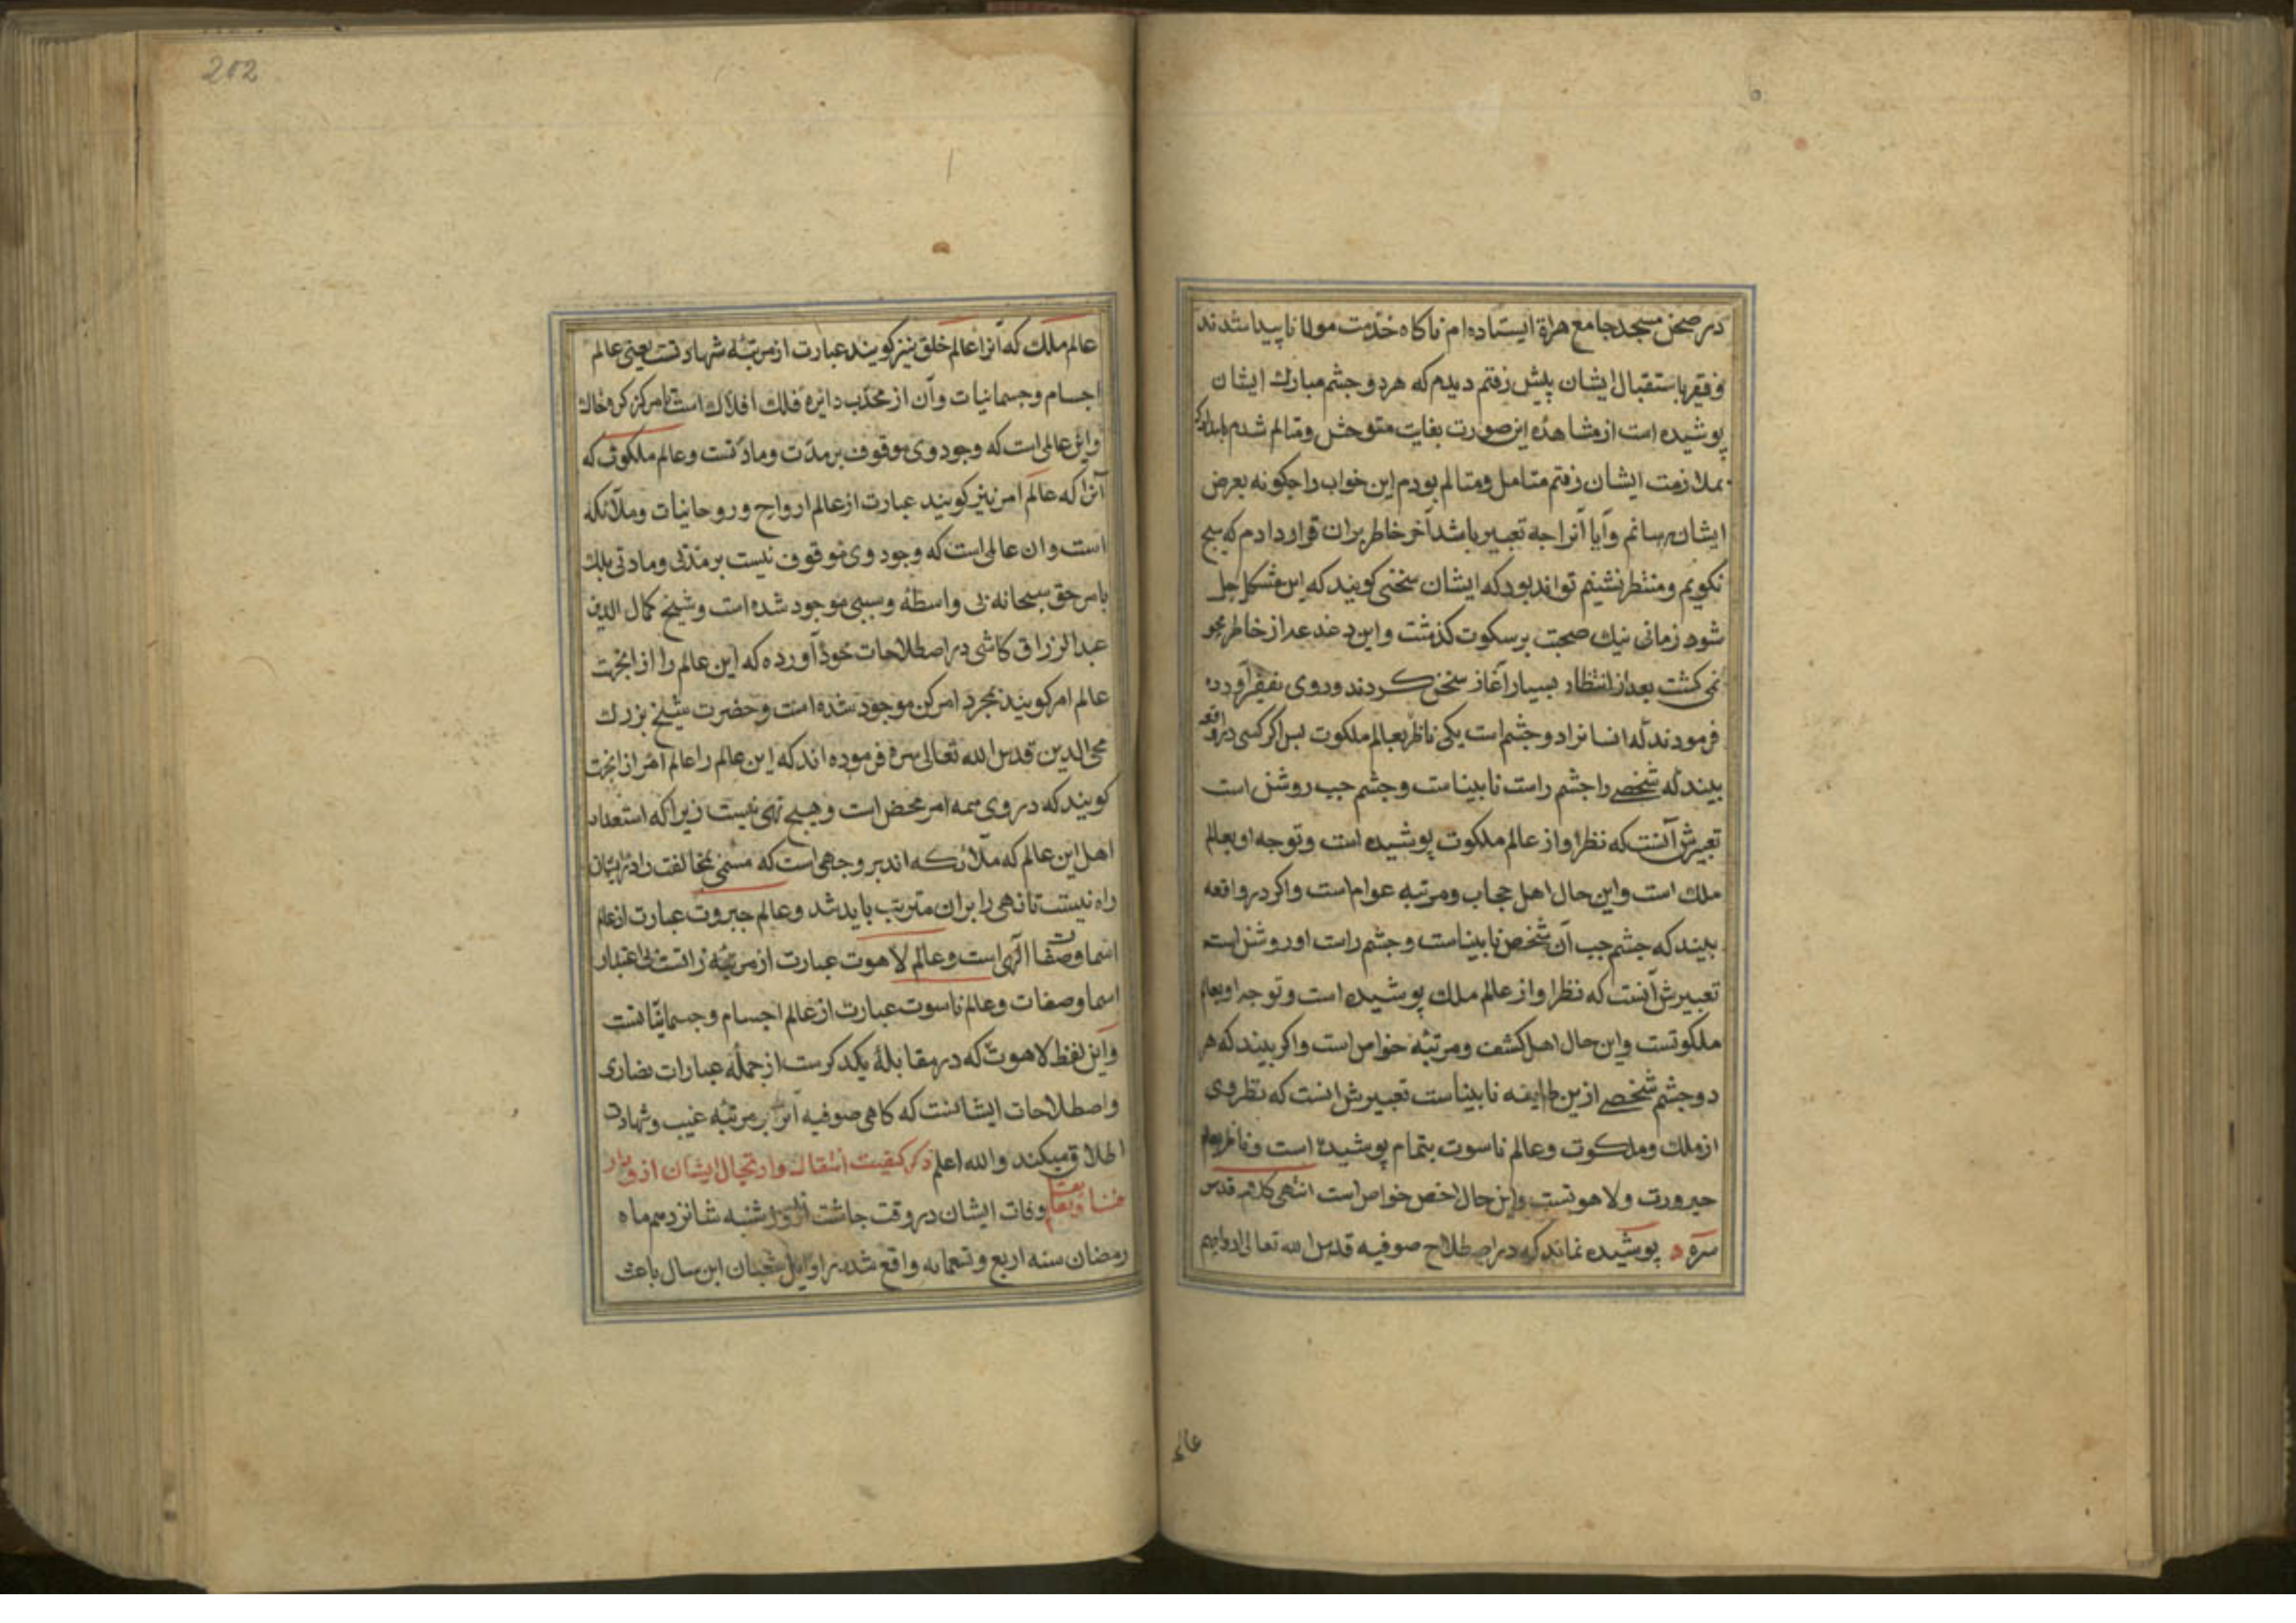 در صحن مسجد جامع هراة ایستاده ام ناکاه خدمت مولانا پیدا شدند
و فقیر باستقبال ایشان پیش رفتم دیدم که هر دو جشم مبارك ایشان
پوشیده است از مشاهدۀ این صورت بغایت متوحش و متالم شدم بامداد که
بملازمت ایشان رفتم متامل و متالم بودم این خواب را جکونه بعرض
ایشان رسانم و آیا آنرا جه تعبیر باشد آخر خاطر بران قرار دادم که هیج
نکویم و منتظر نشینم تواند بود که ایشان سخنی کویند که این مشکل حل
شود زمانی نیك صحبت بر سکوت کذشت و این دغدغه از خاطر محو
نمی کشت بعد از انتظار بسیار آغاز سخن کردند و روی بفقیر آورده
فرمودند که انسانرا دو جشم است یکی ناظر بعالم ملکوت بس اکر کسی در واقعه
بیند که شخصی را جشم راست نابیناست و جشم جب روشن است
تعبیرش آنست که نظر او از عالم ملکوت پوشیده است و توجه او بعالم
ملك است و این حال اهل حجاب و مرتبه عوام است و اکر در واقعه
بیند که جشم جب آن شخص نابیناست و جشم راست او روشن است
تعبیرش آنست که نظر او از عالم ملك پوشیده است و توجه او بعالم
ملکوتست و این حال اهل کشف و مرتبۀ خواص است و اکر بیند که هر
دو جشم شخصی ازین طایفه نابیناست تعبیرش انست که نظر وی
از ملك و ملکوت و عالم ناسوت بتمام پوشیده است و ناظر بعالم
جبروت و لاهوتست و این حال اخص خواص است انتهی کلامه قدس
سره ه پوشیده نماند که در اصطلاح صوفیه قدس الله تعالی ارواحهم
عالم
202
عالم ملك که آنرا عالم خلق نیز کویند عبارت از مرتبۀ شهادتست یعنی عالم
اجسام و جسمانیات و آن از محدب دایره فلك افلاك است تا مرکز کره خاك
و این عالمی است که وجود وی موقوف بر مدّت و مادّتست و عالم ملکوت که
آنرا که عالم امر نیز کویند عبارت از عالم ارواح و روحانیات و ملائکه
است و ان عالمی است که وجود وی موقوف نیست بر مدتی و مادتی بلك
بامر حق سبحانه بی واسطه و سببی موجود شده است و شیخ کمال الدین
عبد الرزاق کاشی در اصطلاحات خود آورده که این عالم را از انجهت
عالم امر کویند بمجرد امر کن موجود شده است و حضرت شیخ بزرك
محی الدین قدس الله تعالی سره فرموده اند که این عالم را عالم امر از انجهت
کویند که در وی همه امر محض است و هیج نهی نیست زیرا که استعداد
اهل این عالم که ملائکه اند بر وجهی است که مخالفت را در ایشان
راه نیست تا نهی را بران مترتب باید شد و عالم جبروت عبارت از عالم
اسما و صفات الهی است و عالم لاهوت عبارت از مرتبۀ ذاتست بی اعتبار
اسما و صفات و عالم ناسوت عبارت از عالم اجسام و جسمانیّاتست
و این لفظ لاهوت که در مقابلۀ یکدکرست از جمله عبارات نصاری
و اصطلاحات ایشانست که کاهی صوفیه آنرا بر مرتبه غیب و شهادت
اطلاق میکند و الله اعلم ذکر کیفیت انتقال و ارتحال ایشان از دار
فنا وفات ایشان در وقت جاشت روز شنبه شانزدهم ماه
رمضان سنه اربع و تسعمایه واقع شد در اوایل شعبان این سال باعث